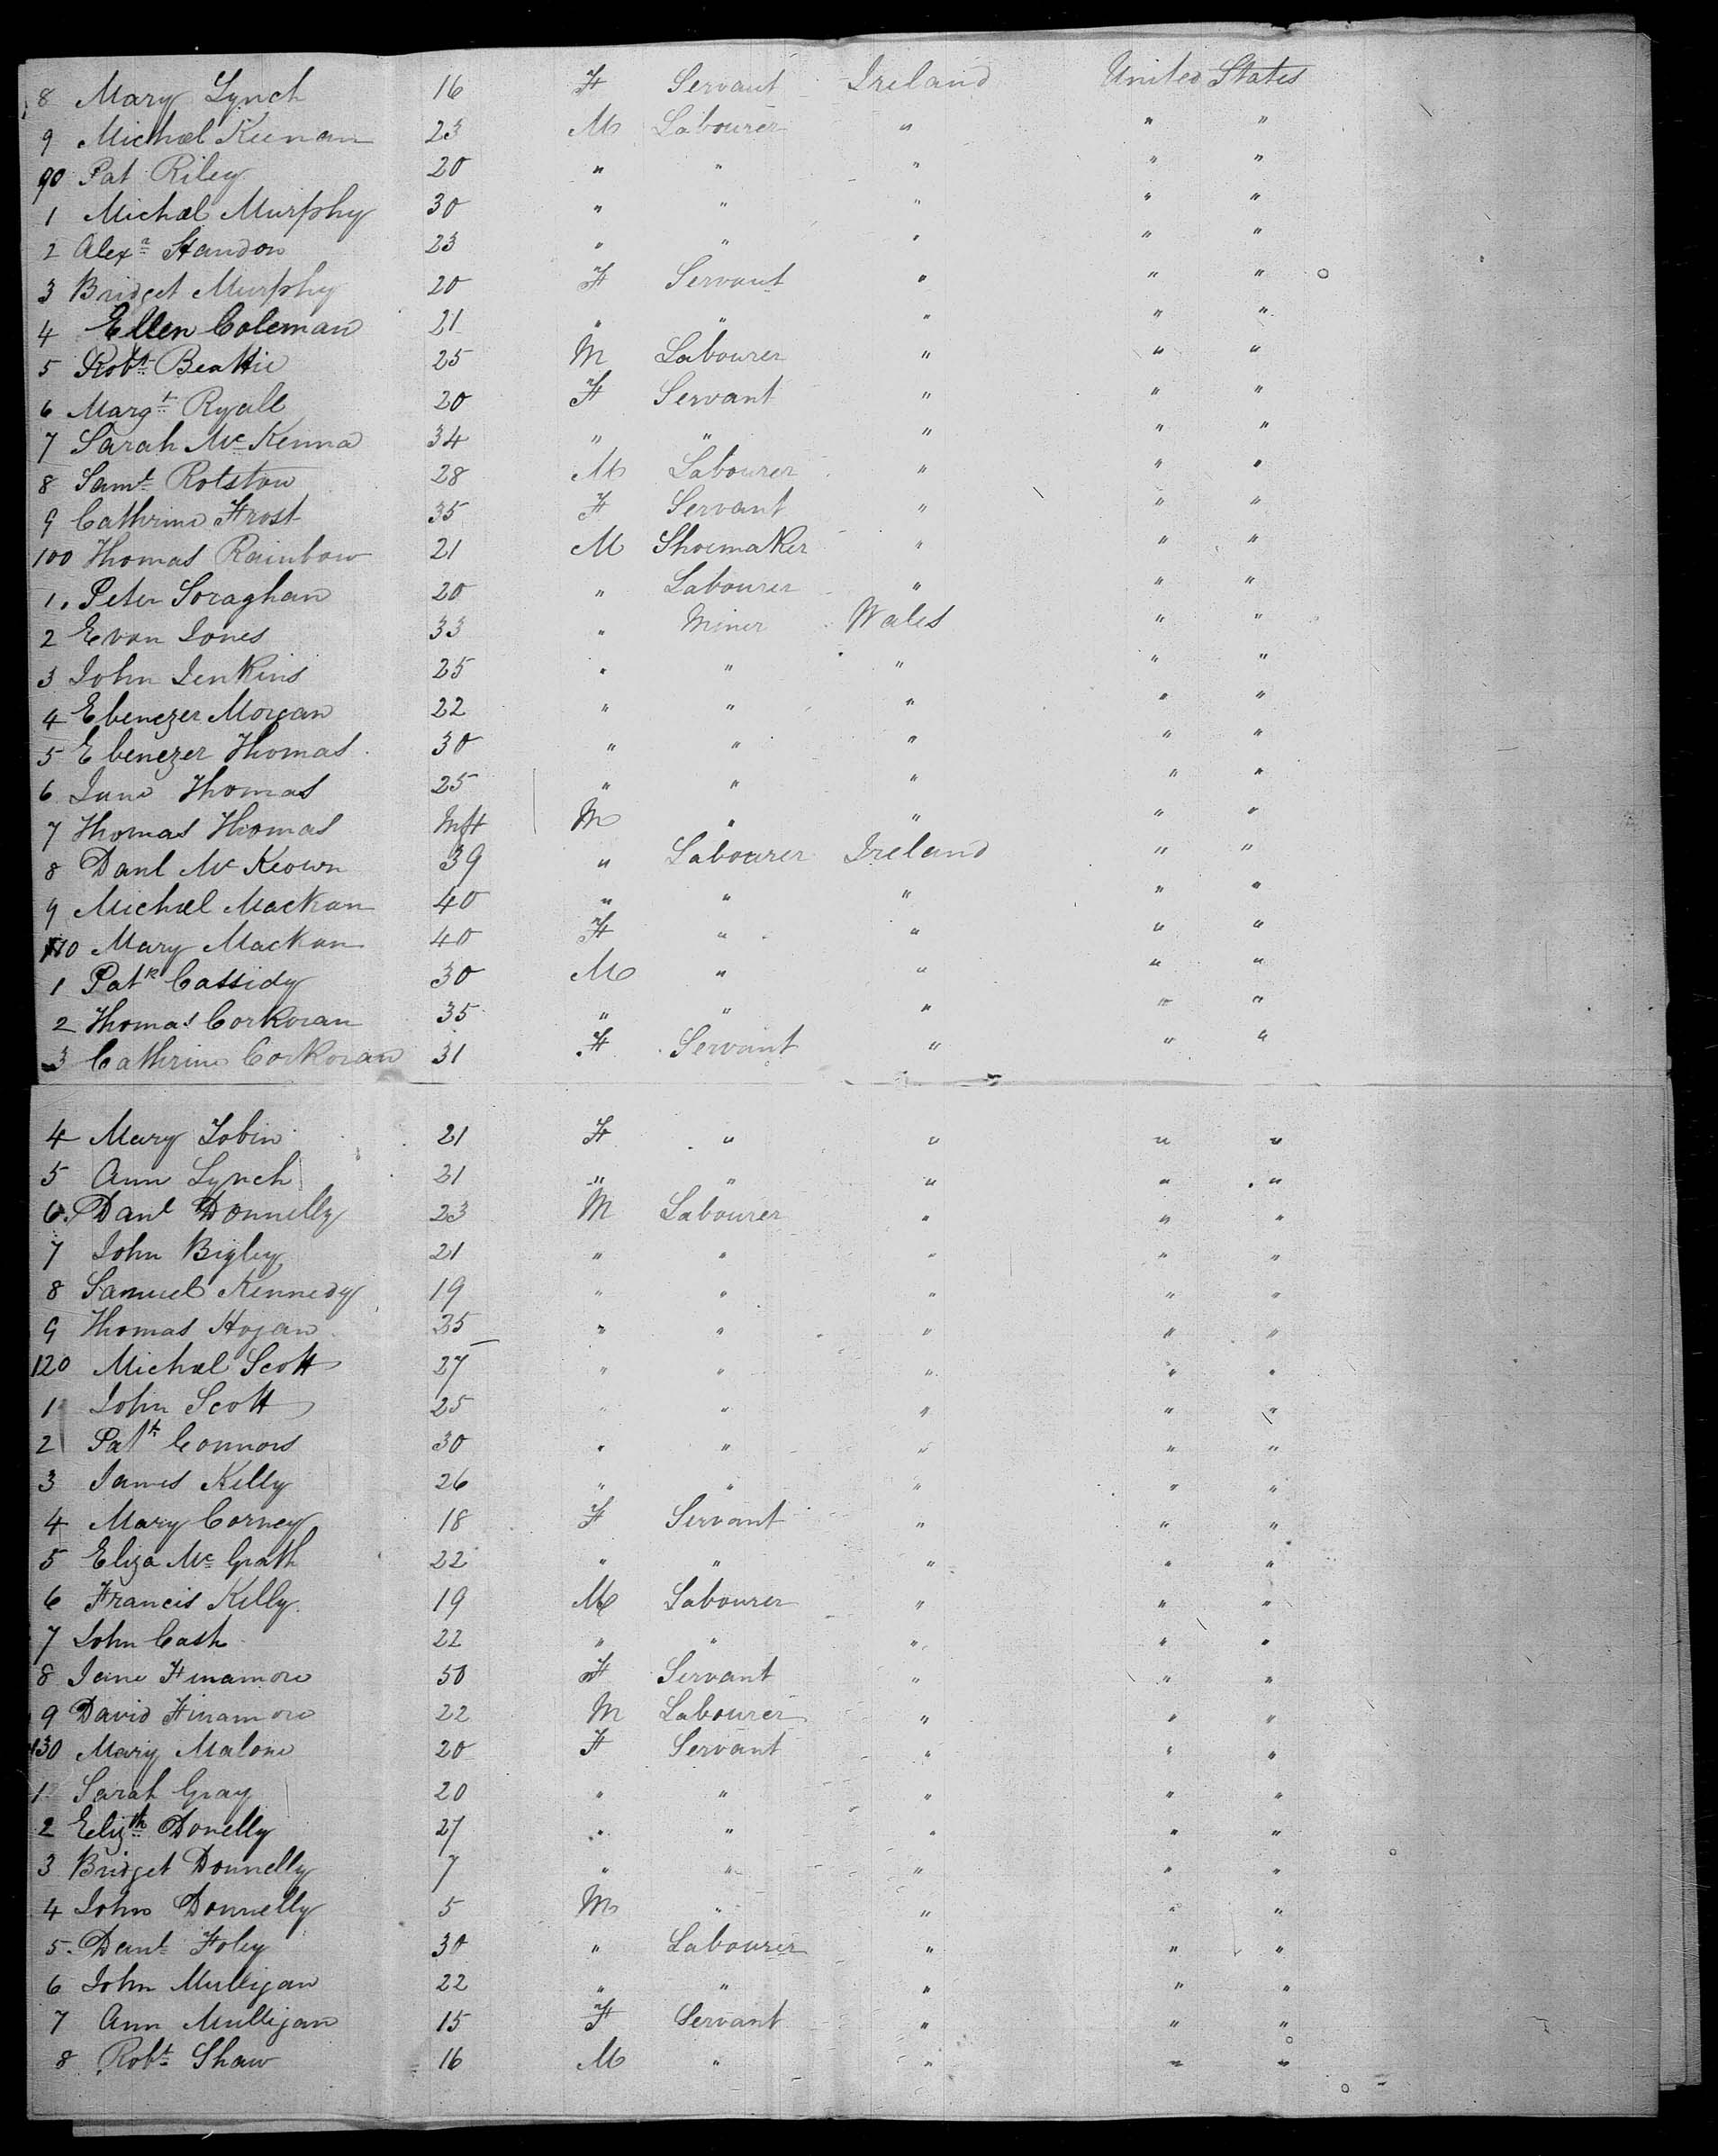 8 Mary Lynch 16 F Servant Ireland United States
9 Michæl Keenan 23 M Labourer " " "
90 Pat Riley 20 " " " " "
1 Michæl Murphy 30 " " " " "
2 Alexr Standon 23 " " " " "
3 Bridget Murphy 20 F Servant " " "
4 Ellen Coleman 21 " " " " "
5 Robt Beattie 25 M Labourer " " "
6 Margt Ryall 20 F Servant " " "
7 Sarah Mc Kenna 34 " " " " "
8 Saml Rolston 28 M Labourer " " "
9 Cathrine Frost 35 F Servant " " "
100 Thomas Rainbow 21 M Shoemaker " " "
1. Peter Soraghan 20 " Labourer " " "
2 Evan Jones 33 " Miner Wales " "
3 John Jenkins 25 " " " " "
4 Ebenezer Morgan 22 " " " " "
5 Ebenezer Thomas 30 " " " " "
6 Jane Thomas 25 " " " " "
7 Thomas Thomas Inft M " " " "
8 Danl Mc Keown 39 " Labourer Ireland " "
9 Michæl Mackan 40 " " " " "
110 Mary Mackan 40 F " " " "
1 Patk Cassidy 30 M " " " "
2 Thomas Corkoran 35 " " " " "
3 Cathrine Corkoran 31 F Servant " " "
4 Mary Tobin 21 F " " " "
5 Ann Lynch 21 " " " " "
6. Danl Donnelly 23 M Labourer " " "
7 John Bigley 21 " " " " "
8 Samuel Kennedy 19 " " " " "
9 Thomas Hogan 35 " " " " "
120 Michæl Scott 27 " " " " "
1 John Scott 25 " " " " "
2 Patk Connors 30 " " " " "
3 James Kelly 26 " " " " "
4 Mary Corney 18 F Servant " " "
5 Eliza Mc Grath 22 " " " " "
6 Francis Kelly 19 M Labourer " " "
7 John Cash 22 " " " " "
8 Jane Finamore 50 F Servant " " "
9 David Finamore 22 M Labourer " " "
130 Mary Malone 20 F Servant " " "
1 Sarah Gray 20 " " " " "
2 Elizth Donelly 27 " " " " "
3 Bridget Donnelly 7 " " " " "
4 John Donnelly 5 M " " " "
5. Danl Foley 30 " Labourer " " "
6 John Mulligan 22 " " " " "
7 Ann Mulligan 15 F Servant " " "
8 Robt Shaw 16 M " " " "